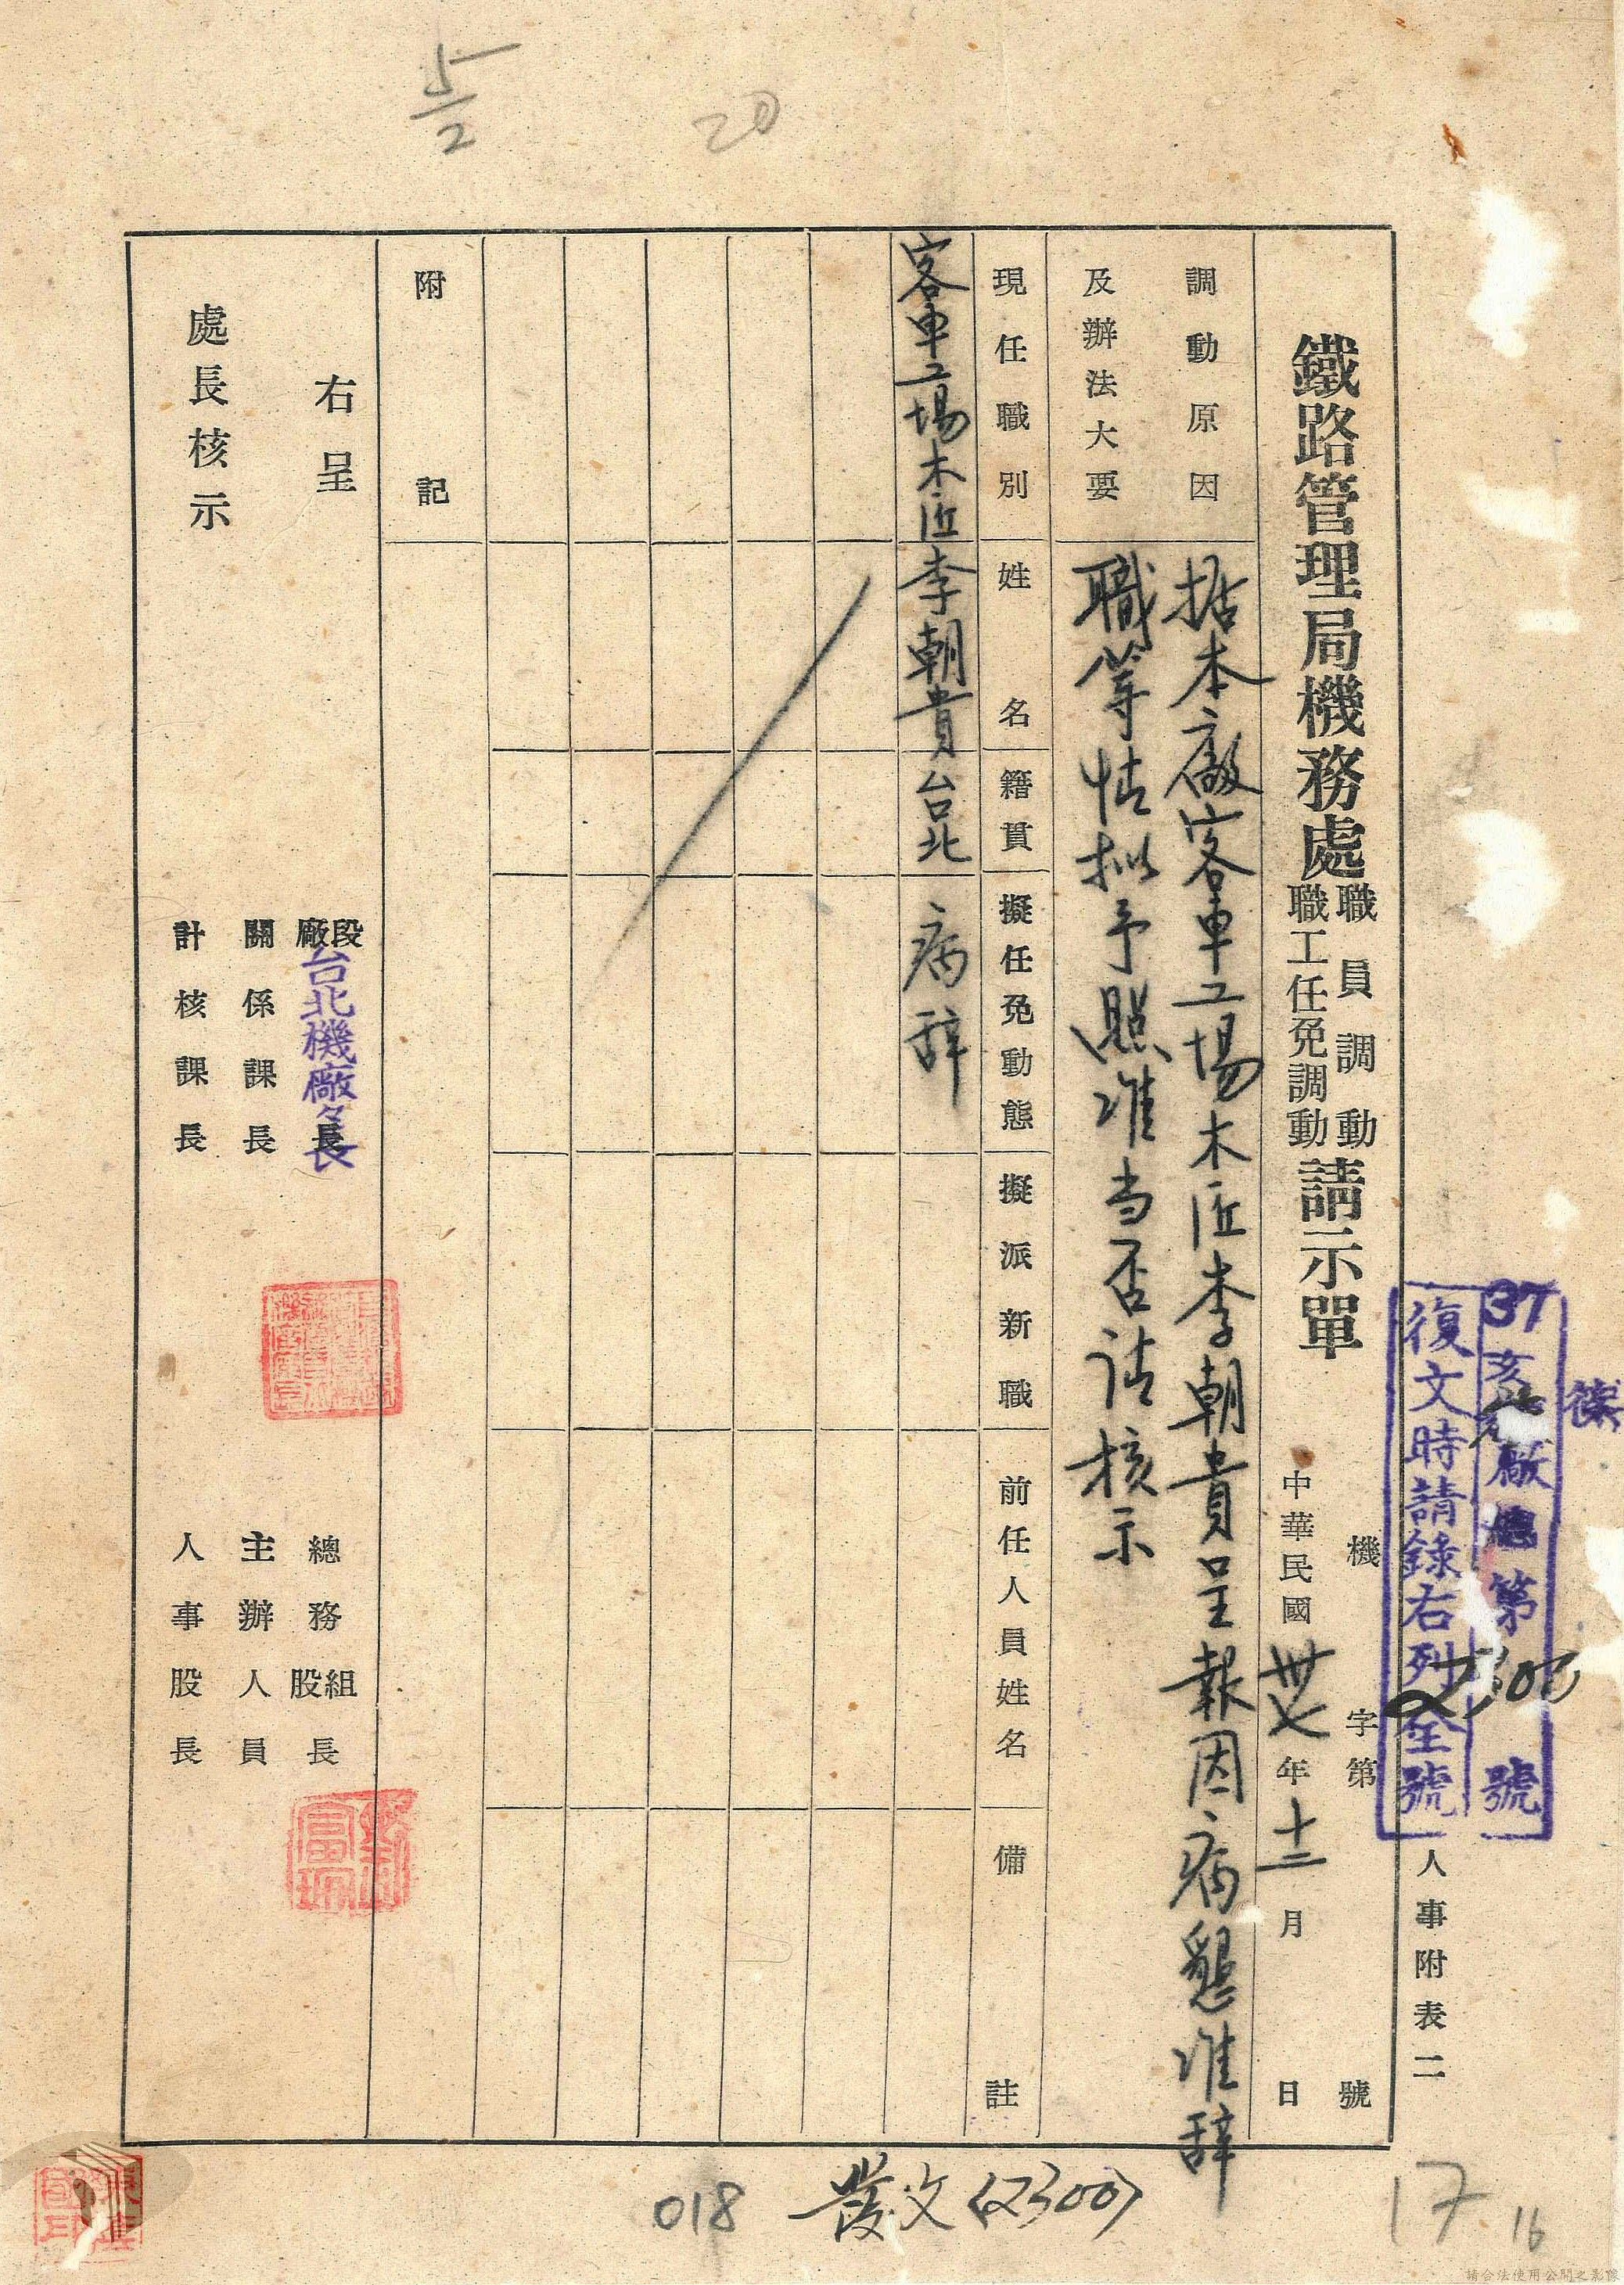 人事附表二
37亥 廠總第2300號
復文時請錄右列全號
鐵路管理局機務處職員調動職工任免調動請示單
機 字第 號
中華民國卅七年十二月 日
調動原因及辦法大要
据本廠客車工場木匠李朝貴呈報因病懇准辞
職等情拟予照准当否请核示
現任職別 姓名 籍貫 擬任免動態 擬派新職 前任人員姓名 備註
客車工場木匠 李朝貴 台北 病辞
附記
右呈
處長核示
段廠長 台北機廠々長
關係課長
計核課長
總務組股長
主辦人員
人事股長
5/2
20
018
發文(2300)
17
16
請合法使用公開之影像